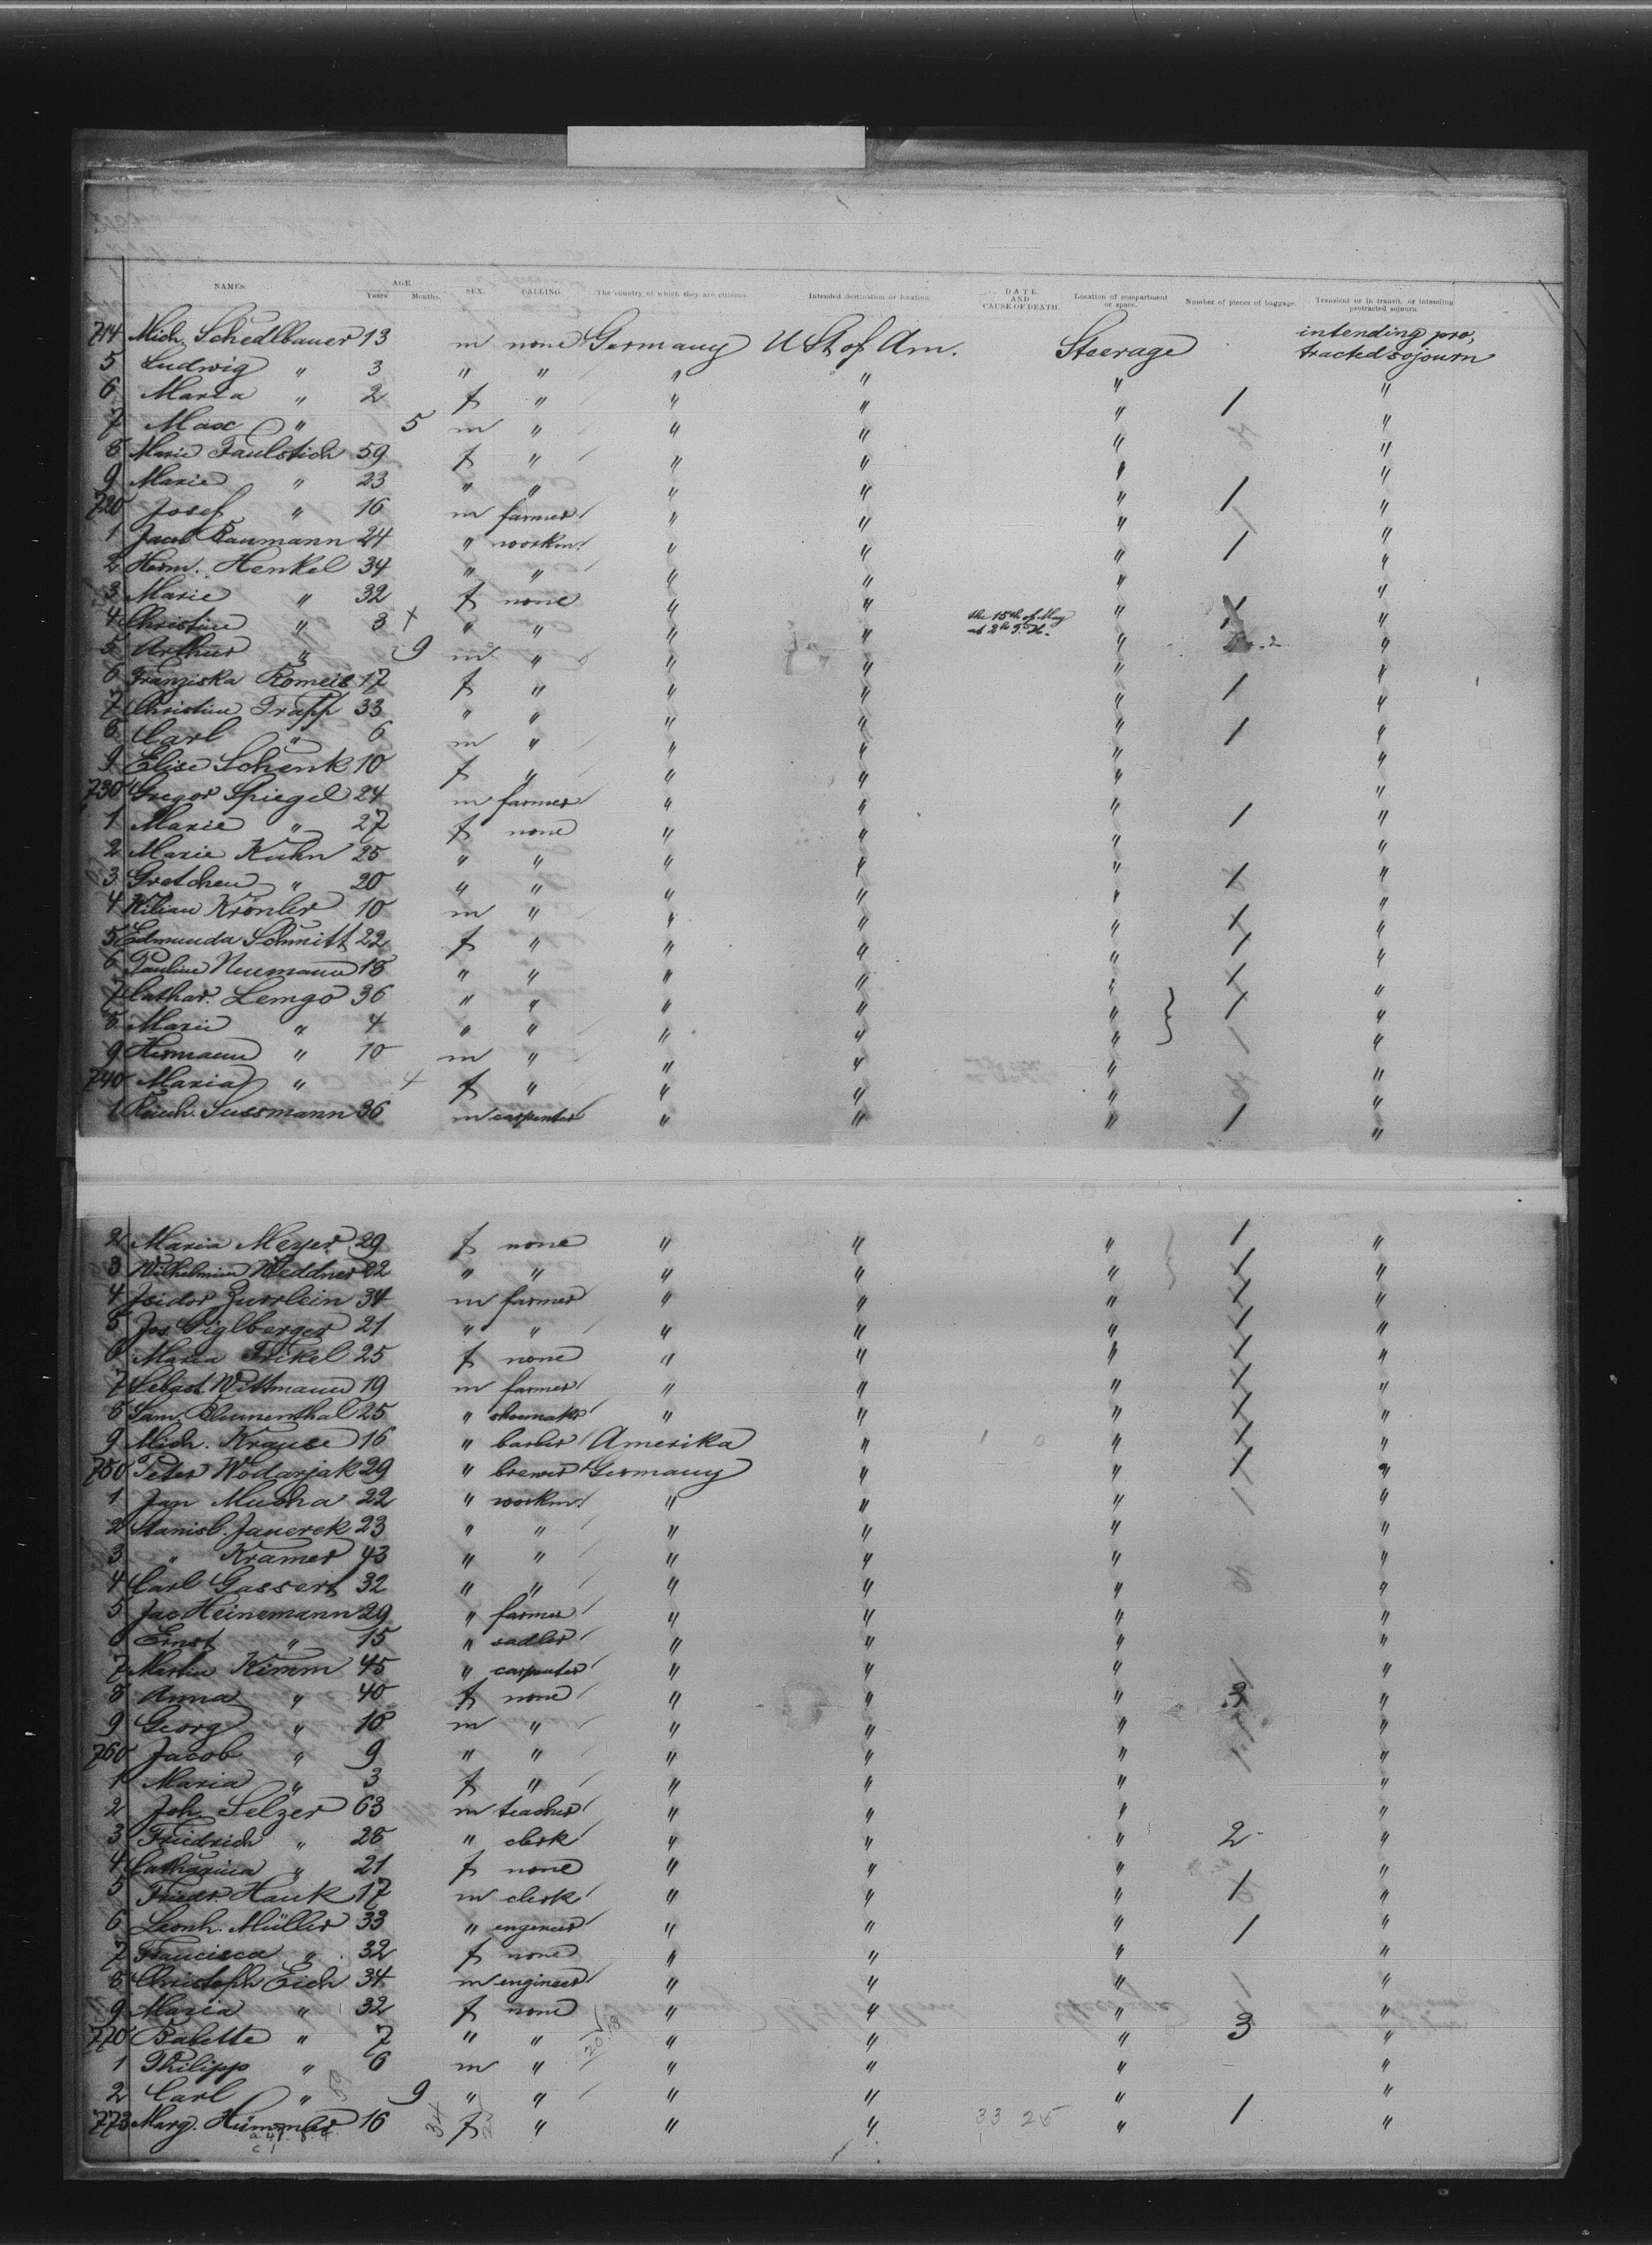 NAMES. AGE. Years Months. SEX. CALLING. The country of which they are citizens. Intended destination or location. DATE AND CAUSE OF DEATH. Location of compartment or space. Number of pieces of baggage. Transient or in transit, or intending protracted sojourn
714 Mich. Schedlbauer 13 m none Germany U St of Am. Steerage intending pro, tracted sojourn
5 Ludwig " 3 " " " " " "
6 Maria " 2 f " " " " 1 "
7 Max " 5 m " " " " "
8 Marie Faulstich 59 f " " " " "
9 Marie " 23 " " " " " 1 "
720 Josef " 16 m farmer " " " "
1 Jacob Baumann 24 " workm. " " " 1 "
2 Herm. Henkel 34 " " " " " "
3 Marie " 32 f none " " " 1 "
4 Christine " 3 + " " " " the 15th of May at 2h P.M. " "
5 Arthur " 9 m " " " " "
6 Franziska Romeis 17 f " " " " 1 "
7 Christine Trapp 33 " " " " " "
8 Carl " 6 m " " " " 1 "
9 Elise Schenk 10 f " " " " "
730 Gregor Spiegel 24 m farmer " " " 1 "
1 Marie " 27 f none " " " "
2 Marie Kuhn 25 " " " " " "
3 Gretchen " 20 " " " " " 1 "
4 Kilian Krönler 10 m " " " " 1 "
5 Edmunda Schmitt 22 f " " " " 1 "
6 Pauline Neumann 18 " " " " " 1 "
7 Cathar. Lemgo 36 " " " " " 1 "
8 Marie " 4 " " " " " "
9 Hermann " 10 m " " " " "
740 Maria " 4 f " " " " "
1 Sussmann 36 m carpenter " " " 1 "
2 Maria Meyer 29 f none " " " 1 "
3 Wilhelmine Weddner 22 " " " " " 1 "
4 Isidor Zurrlein 34 m farmer " " " 1 "
5 Jos. Giglberger 21 " " " " " 1 "
6 Maria Frikel 25 f none " " " 1 "
7 Sebast. Wittmann 19 m farmer " " " 1 "
8 Sam. Blumenthal 25 " shoemaker " " " 1 "
9 Mich. Krause 16 " barber Amerika " " 1 "
750 Peter Wodarjak 29 " brewer Germany " " 1 "
1 Jan Mucha 22 " workm. " " " 1 "
2 Stanisl. Janerek 23 " " " " " "
3 " Kramer 43 " " " " " "
4 Carl Gassert 32 " " " " " "
5 Jac Heinemann 29 " farmer " " " "
6 Ernst " 15 " sadler " " " "
7 Martin Kimm 45 " carpenter " " " "
8 Anna " 40 f none " " " 3 "
9 Georg " 18 m " " " " "
760 Jacob " 9 " " " " " "
1 Maria " 3 f " " " " "
2 Joh. Selzer 63 m teacher " " " "
3 Friedrich " 28 " clerk " " " 2 "
4 Catharina " 21 f none " " " "
5 Friedr. Hauk 17 m clerk " " " 1 "
6 Leonh. Müller 33 " engeneer " " " 1 "
7 Francisca " 32 f none " " " "
8 Christoph Eich 34 m engineer " " " "
9 Maria " 32 f none " " " "
770 Babette " 7 " " " " " 3 "
1 Philipp " 6 m " " " " "
2 Carl " 9 " " " " " "
773 Marg. Hümmler 16 f " " " 33 25 " 1 "